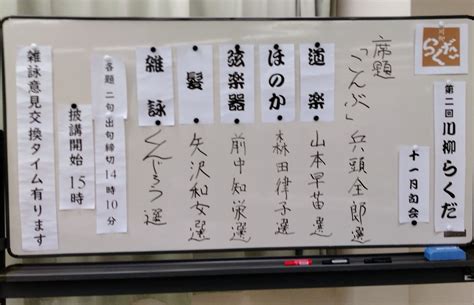 らくだ
第二回 川柳らくだ
十一月句会
席題
「こんぶ」 兵頭全郎選
道楽 山本早苗選
ほのか 森田律子選
弦楽器 前中知栄選
髪 矢沢和女選
雑詠 くんじろう選
各題 二句出句締切14時10分
披講開始 15時
雑詠意見交換タイム有ります